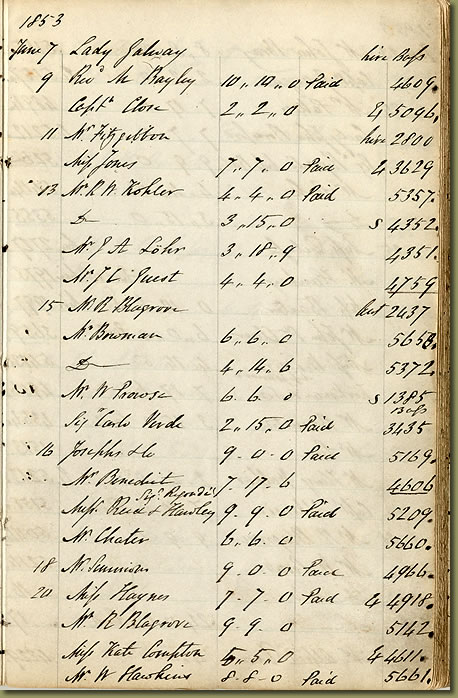 1853
June 7 Lady Galway hire Bass
9 Revd M Bayley 10 ,, 10 ,, 0 Paid 4609.
Captn Close 2 ,, 2 ,, 0 5096.
11 Mr Fitzgibbon hire 2800
Miss Jones 7 ,, 7 ,, 0 Paid 3629
13 Mr R W Kohler 4 ,, 4 ,, 0 Paid 5357.
Do 3 ,, 15 ,, 0 S 4352.
Mr J A Löhr 3 ,, 18 ,, 9 4351.
Mr J L Guest 4 ,, 4 ,, 0 4759
15 Mr R Blagrove 2437
Mr Bowman 6 ,, 6 ,, 0 5658.
Do 4 ,, 14 ,, 6 5372.
Mr W Prowse 6 . 6 . 0 S 1385
Bass
Sigr Carlo Verde 2 ,, 15 ,, 0 Paid 3435
16 Josephs & Co 9 - 0 - 0 Paid 5169.
Mr Benedict 7 - 17 - 6 4606
Sigr Regondi
Miss Reid & Hawley 9 - 9 - 0 Paid 5209.
Mr Chater 6 ,, 6 ,, 0 5660.
18 Mr 9 - 0 - 0 Paid 4966.
20 Miss Haynes 7 - 7 - 0 Paid 4918.
Mr R Blagrove 9 - 9 - 0 5142.
Miss Kate Compton 5 ,, 5 ,, 0 4611.
Mr W Hawkins 8 - 8 - 0 Paid 5661.